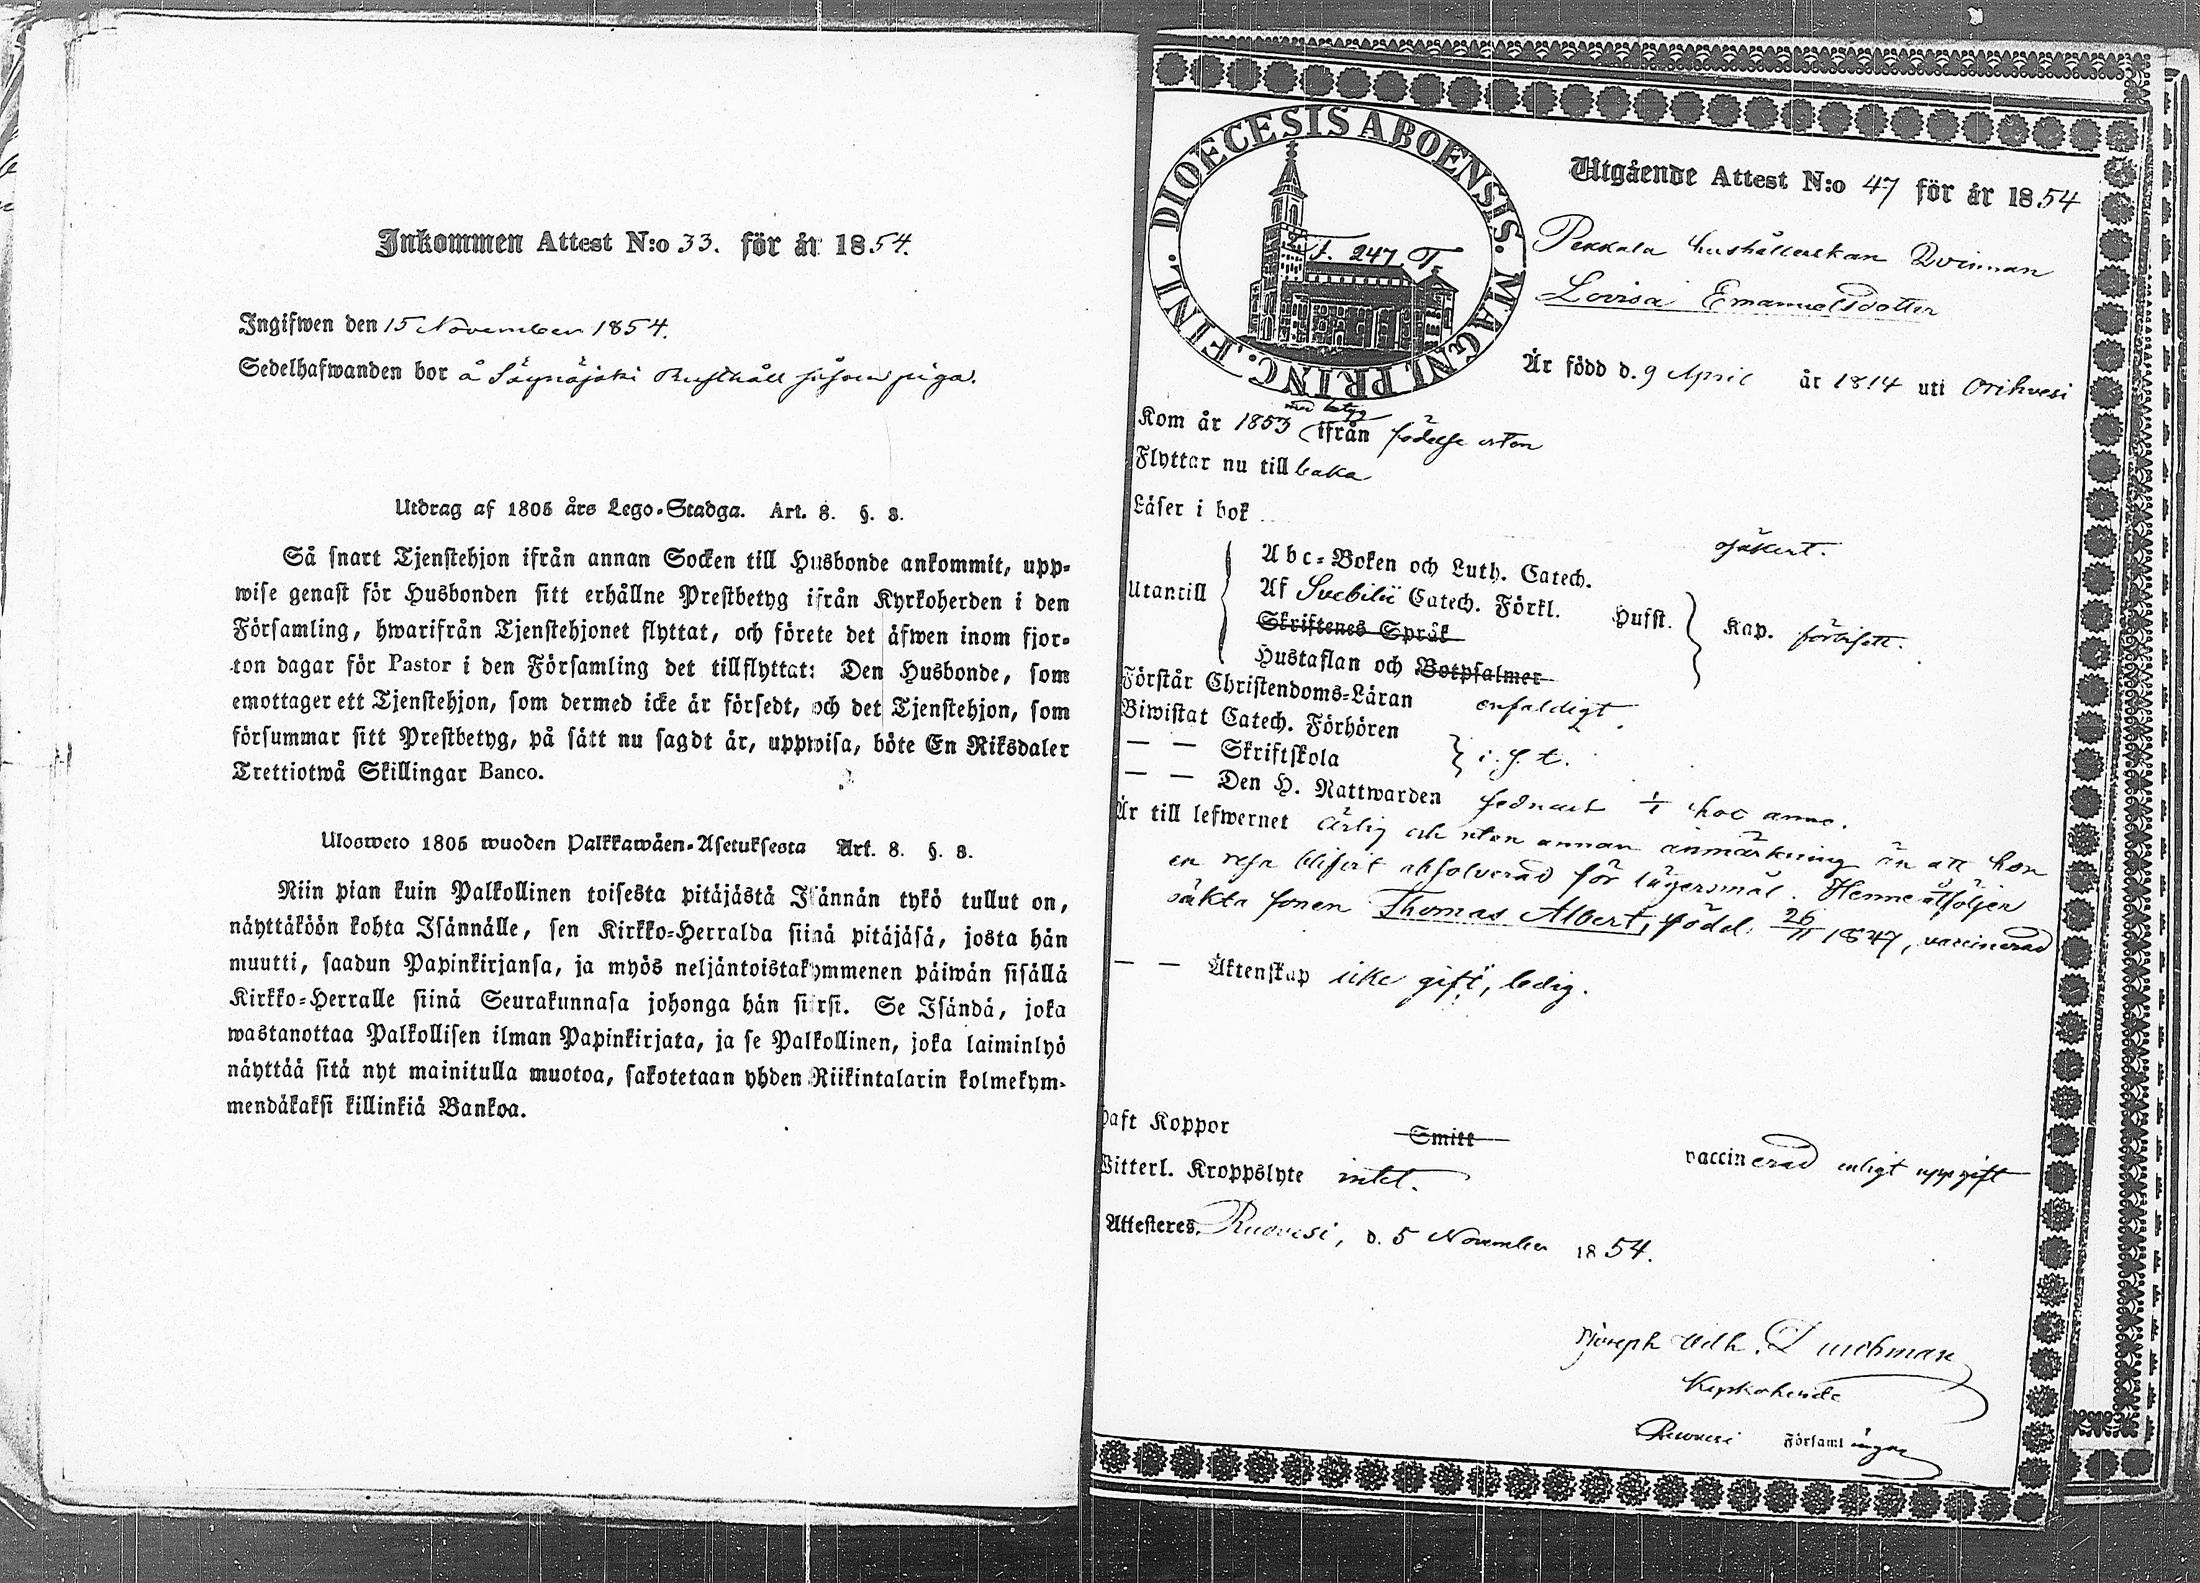 Inkommen Attest N:o 33. för år 1854.
Ingifwen den 15 November 1854.
Sedelhafwanden bor å Säynäjoki Rusthåll såsom piga.
Utdrag af 1805 års Lego-Stadga. Art. 8. §. 3.
Så snart Tjenstehjon ifrån annan Socken till Husbonde ankommit, upp-
wise genast för Husbonden sitt erhållne Prestbetyg ifrån Kyrkoherden i den
Församling, hwarifrån Tjenstehjonet flyttat, och förete det äfwen inom fjor-
ton dagar för Pastor i den Församling det tillflyttat: Den Husbonde, som
emottager ett Tjenstehjon, som dermed icke är försedt, och det Tjenstehjon, som
försummar sitt Prestbetyg, på sätt nu sagdt är, uppwisa, böte En Riksdaler
Trettiotwå Skillingar Banco.
Ulosweto 1805 wuoden Palkkawäen-Asetuksesta Art. 8. §. 3.
Niin pian kuin Palkollinen toisesta pitäjästä Isännän tykö tullut on,
näyttäköön kohta Isännälle, sen Kirkko-Herralda siinä pitäjäsä, josta hän
muutti, saadun Papinkirjansa, ja myös neljäntoistakymmenen päiwän sisällä
Kirkko-Herralle siinä Seurakunnasa johonga hän siirsi. Se Isändä, joka
wastanottaa Palkollisen ilman Papinkirjata, ja se Palkollinen, joka laiminlyö
näyttää sitä nyt mainitulla muotoa, sakotetaan yhden Riikintalarin kolmekym-
mendäkaksi killinkiä Bankoa.
DIOECESIS ABOENSIS. MAGNI PRINC. FINL.
T. F. 247. T.
Utgående Attest N:o 47 för år 1854
Pekkala hushållerskan Qvinnan
Lovisa Emanuelsdotter
Är född d. 9 April år 1814 uti Orihvesi
med betyg
Kom år 1853 ifrån födelse orten
Flyttar nu till baka
Läser i bok
Utantill
Abc-Boken och Luth. Catech.
Af Svebilii Catech. Förkl.
Skriftenes Språk
Hustaflan och Botpsalmer
osäkert.
Hufst. Kap. förbisett.
Förstår Christendoms-Läran enfaldigt.
Biwistat Catech. Förhören
— — Skriftskola i. f. t.
— — Den H. Nattwarden sednast 1/1 hoc anno.
Är till lefwernet ärlig och utan annan anmärkning än att hon
en resa blifvit absolverad för lägersmål. Henne åtföljer
oäkta sonen Thomas Albert, född. 26/11 1847, vaccinerad
— — Äktenskap icke gift, ledig.
Haft Koppor Smitt vaccinerad enligt uppgift
Witterl. Kroppslyte intet.
Attesteres. Ruovesi, d. 5 November 1854.
Joseph Wilh. Durchman
Kyrkoherde
Ruovesi Församlingar